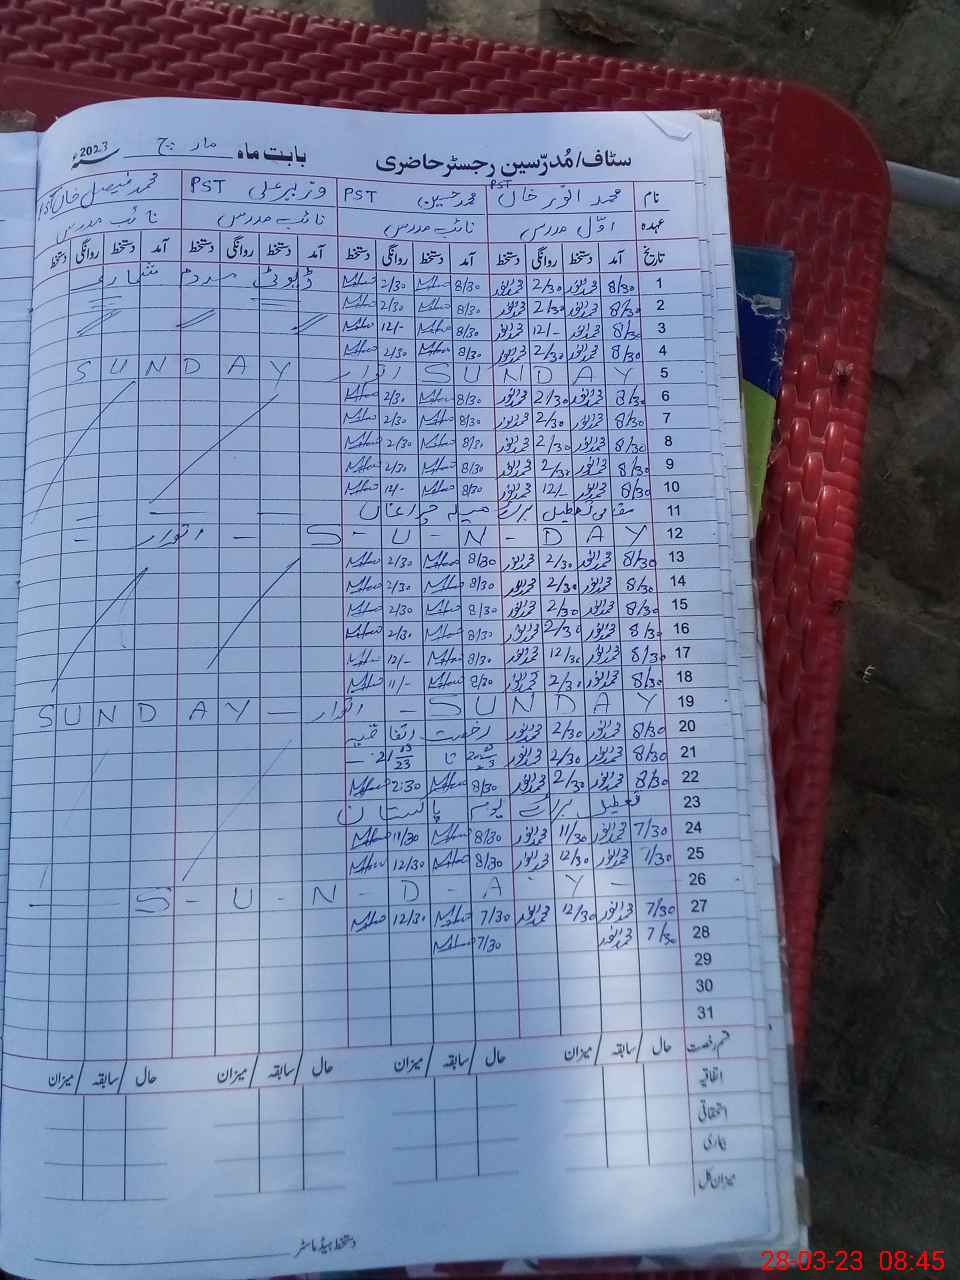 سٹاف/مُدرّسین رجسٹر حاضری بابت ماہ مارچ سنہ 2023ء
نام محمد انور خان PST محمد حسین PST وزیر علی PST محمد فیصل خان
عہدہ اوّل مدرس نائب مدرس نائب مدرس نائب مدرس
تاریخ آمد دستخط روانگی دستخط آمد دستخط روانگی دستخط آمد دستخط روانگی دستخط آمد دستخط روانگی دستخط
1 8/30 محمد انور 2/30 محمد انور 8/30 2/30 ڈیوٹی مردم شماری
2 8/30 محمد انور 2/30 محمد انور 8/30 2/30
3 8/30 محمد انور 12/- محمد انور 8/30 12/-
4 8/30 محمد انور 2/30 محمد انور 8/30 2/30
5 SUNDAY اتوار SUNDAY
6 8/30 محمد انور 2/30 محمد انور 8/30 2/30
7 8/30 محمد انور 2/30 محمد انور 8/30 2/30
8 8/30 محمد انور 2/30 محمد انور 8/30 2/30
9 8/30 محمد انور 2/30 محمد انور 8/30 2/30
10 8/30 محمد انور 12/- محمد انور 8/30 12/-
11 مقامی تعطیل برائے میلہ چراغاں
12 S-U-N-DAY - اتوار -
13 8/30 محمد انور 2/30 محمد انور 8/30 2/30
14 8/30 محمد انور 2/30 محمد انور 8/30 2/30
15 8/30 محمد انور 2/30 محمد انور 8/30 2/30
16 8/30 محمد انور 2/30 محمد انور 8/30 2/30
17 8/30 محمد انور 12/30 محمد انور 8/30 12/-
18 8/30 محمد انور 2/30 محمد انور 8/30 11/-
19 SUNDAY - اتوار - SUNDAY
20 8/30 محمد انور 2/30 محمد انور رخصت اتفاقیہ
21 8/30 محمد انور 2/30 محمد انور تا 21
22 8/30 محمد انور 2/30 محمد انور 8/30 2:30
23 تعطیل برائے یوم پاکستان
24 7/30 محمد انور 11/30 محمد انور 8/30 11/30
25 7/30 محمد انور 12/30 محمد انور 8/30 12/30
26 S-U-N-D-A-Y-
27 7/30 محمد انور 12/30 محمد انور 7/30 12/30
28 7/30 محمد انور 7/30
29
30
31
قسم رخصت حال/سابقہ/میزان حال/سابقہ/میزان حال/سابقہ/میزان حال/سابقہ/میزان
اتفاقیہ
استحقاقی
بیماری
میزان کل
دستخط ہیڈ ماسٹر
28-03-23 08:45